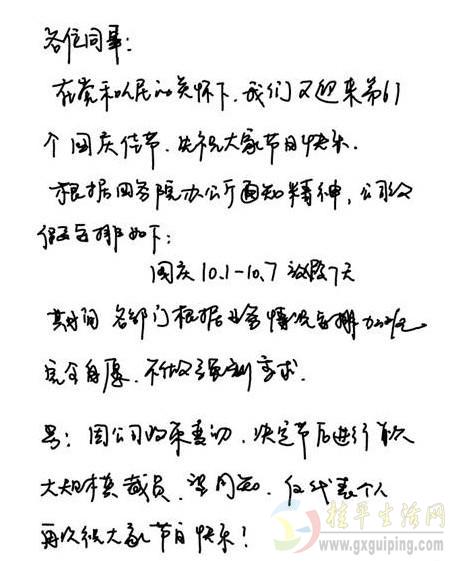 各位同事：
在党和人民的关怀下，我们又迎来第61
个国庆佳节，先祝大家节日快乐。
根据国务院办公厅通知精神，公司放
假安排如下：
国庆10.1-10.7 放假7天
其时间 各部门根据业务情况安排加班。
完全自愿，不做强制要求。
另：因公司效果，决定节后进行首次
大规模裁员，望周知，仅代表个人
再次祝大家节日快乐！
桂平生活网
www.gxguiping.com